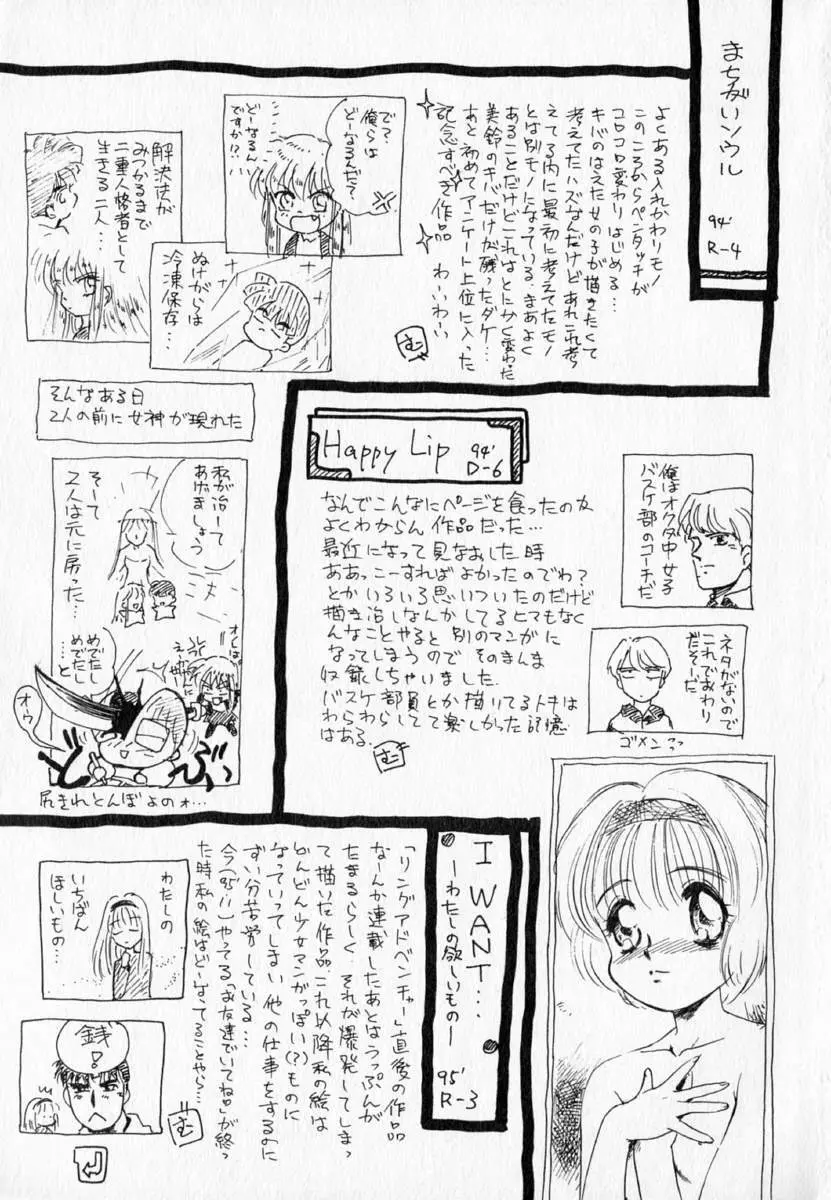 まちがいソウル
94'
R-4
よくある入れかわりモノ
このころからペンタッチが
コロコロ変わりはじめる…
キバのはえた女の子が描きたくて
考えてたハズなんだけどあれこれ考
えてる内に最初に考えてたモノ
とは別モノになっている。まあよく
あることだけどこれはとにかく変わった
美鈴のキバだけが残ったダケ…
あと初めてアンケート上位に入った
記念すべき作品 わーいわーい
む
で?
俺らは
どーなるんだ?
どーなるん
ですか!?
ぬけがらは
冷凍保存…
解決法が
みつかるまで
二重人格者として
生きる二人…
そんなある日
2人の前に女神が現れた
私が治して
あげましょう
そして
2人は元に戻った…
めでたし
めでたし
…と
オウ
尻きれとんぼよのォ…
Happy Lip
94'
D-6
なんでこんなにページを食ったのか
よくわからん作品だった…
最近になって見なおした時
ああっこーすればよかったのでわ?
とかいろいろ思いついたのだけど
描き治しなんかしてるヒマもなく
んなことやると別のマンガに
なってしまうのでそのまんま
収録しちゃいました.
バスケ部員とか描いてるトキは
わらわらしてて楽しかった記憶
はある.
む
俺はオクタ中女子
バスケ部のコーチだ
ネタがないので
これでおわり
だそーだ
ゴメンっっ
I WANT…
―わたしの欲しいもの―
95'
R-3
「リングアドベンチャー」直後の作品
なーんか連載したあとはうっぷんが
たまるらしく、それが爆発してしまっ
て描いた作品.これ以降私の絵は
どんどん少女マンガっぽい(?)ものに
なっていってしまい他の仕事をするのに
ずい分苦労している…
今(95'11)やってる「お友達でいてね」が終っ
た時私の絵はど-なってることやら…
む
わたしの
いちばん
ほしいもの…
銭!